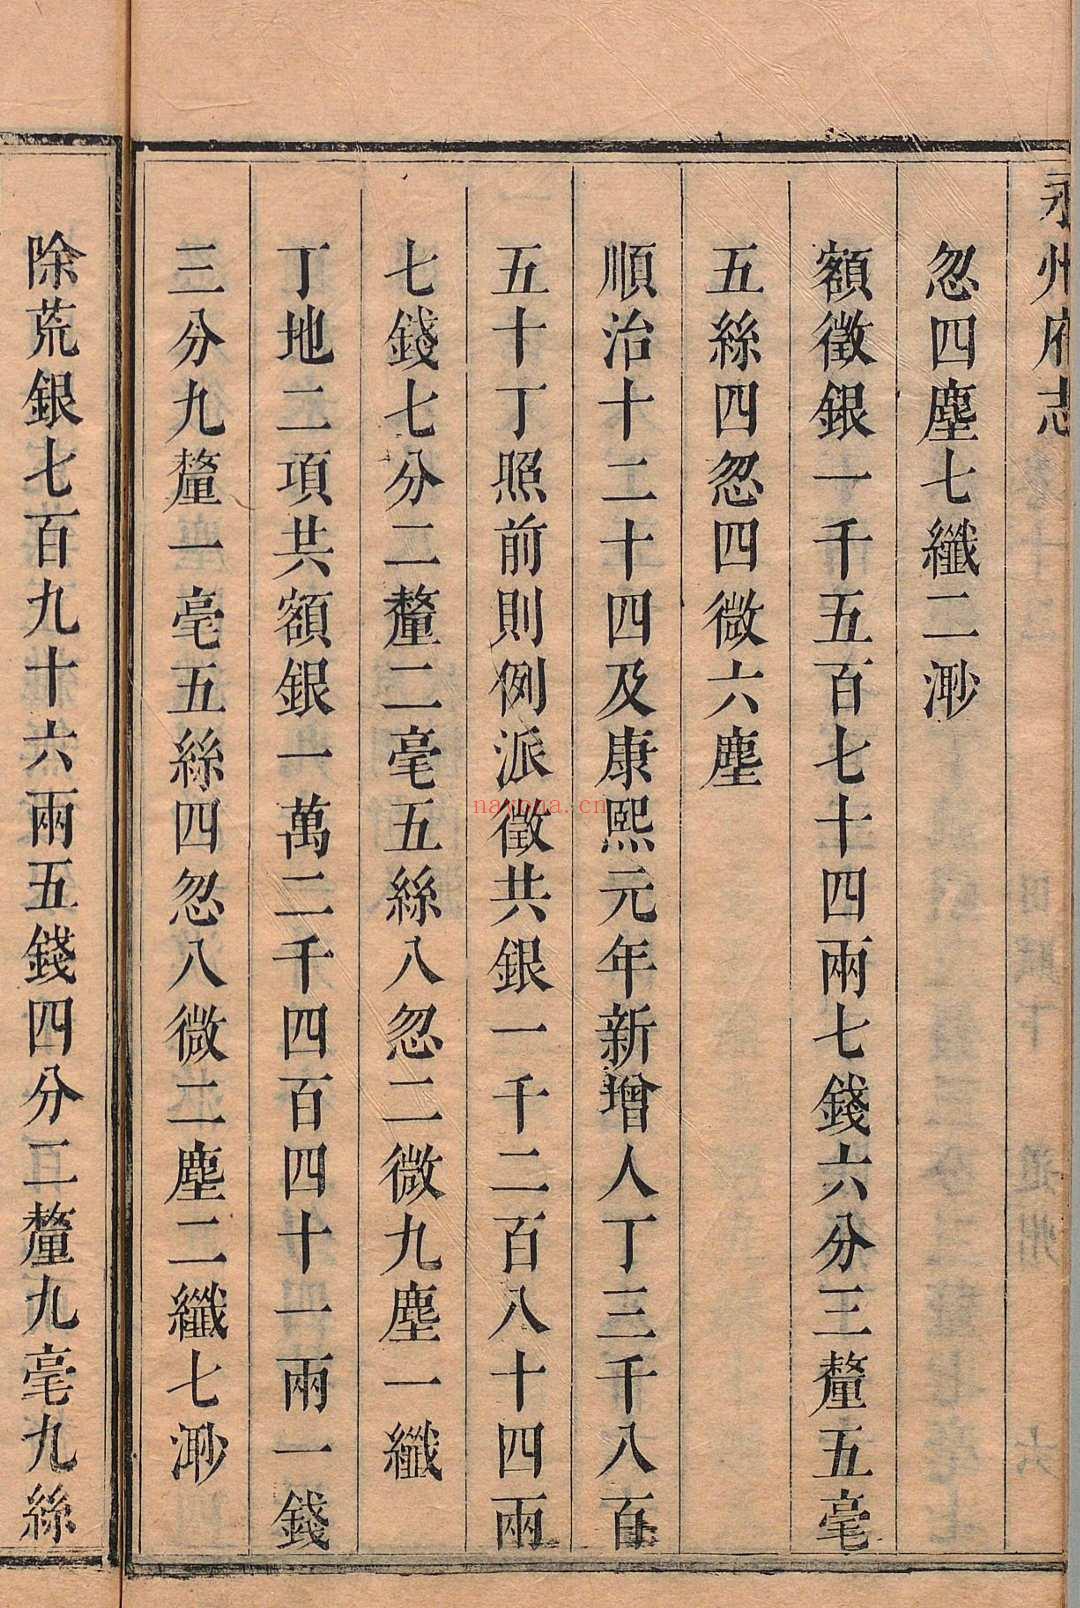 永州府志
忽四塵七纖二渺
額徵銀一千五百七十四兩七錢六分三釐五毫
五絲四忽四微六塵
順治十二十四及康熙元年新增人丁三千八百
五十丁照前則例派徵共銀一千二百八十四兩
七錢七分二釐二毫五絲八忽二微九塵一纖
丁地二項共額銀一萬二千四百四十一兩一錢
三分九釐一毫五絲四忽八微二塵二纖七渺
除荒銀七百九十六兩五錢四分二釐九毫九絲
nayona.cn